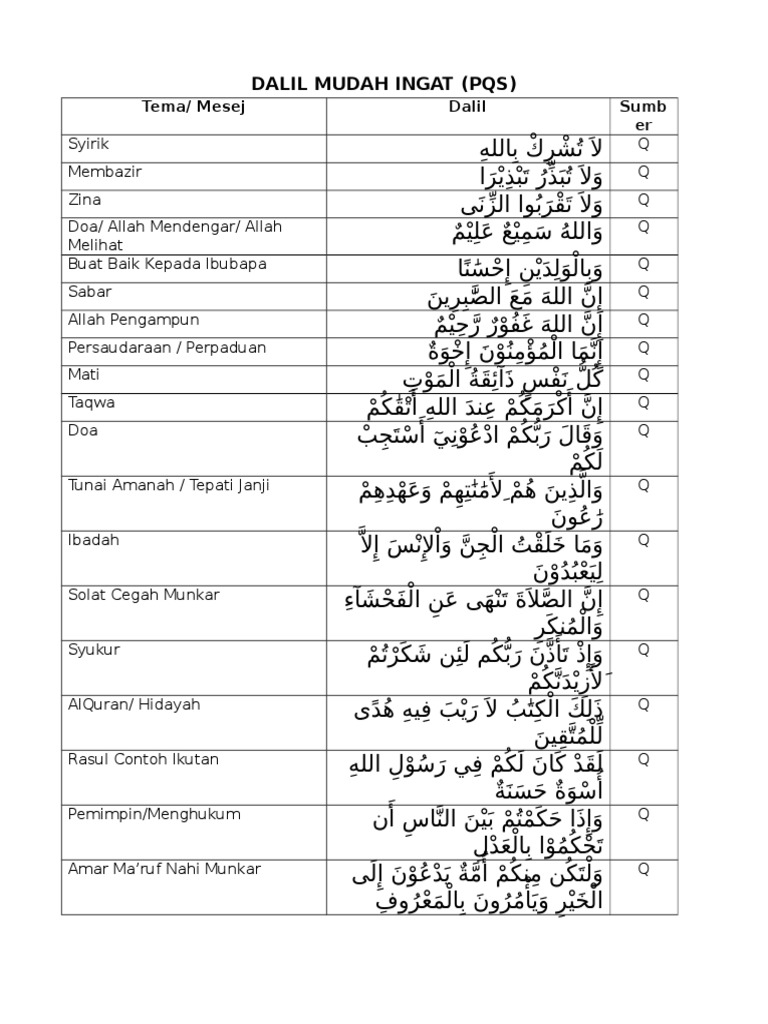 DALIL MUDAH INGAT (PQS)
Tema/ Mesej Dalil Sumb
er
Syirik لاَ تُشْرِكْ بِاللهِ Q
Membazir وَلاَ تُبَذِّرْ تَبْذِيْرَا Q
Zina وَلاَ تَقْرَبُوا الزِّنَى Q
Doa/ Allah Mendengar/ Allah وَاللهُ سَمِيْعٌ عَلِيْمٌ Q
Melihat
Buat Baik Kepada Ibubapa وَبِالْوَلِدَيْنِ إِحْسَٰنًا Q
Sabar إِنَّ اللهَ مَعَ الصَّٰبِرِينَ Q
Allah Pengampun إِنَّ اللهَ غَفُوْرٌ رَّحِيْمٌ Q
Persaudaraan / Perpaduan إِنَّمَا الْمُؤْمِنُوْنَ إِخْوَةٌ Q
Mati كُلُّ نَفْسٍ ذَآئِقَةُ الْمَوْتِ Q
Taqwa إِنَّ أَكْرَمَكُمْ عِندَ اللهِ أَتْقَٰكُمْ Q
Doa وَقَالَ رَبُّكُمْ ادْعُوْنِيٓ أَسْتَجِبْ Q
لَكُمْ
Tunai Amanah / Tepati Janji وَالَّذِينَ هُمْ ِلأَمَٰنَٰتِهِمْ وَعَهْدِهِمْ Q
رَٰعُونَ
Ibadah وَمَا خَلَقْتُ الْجِنَّ وَاْلإِنْسَ إِلاَّ Q
لِيَعْبُدُوْنَ
Solat Cegah Munkar إِنَّ الصَّلاَةَ تَنْهَى عَنِ الْفَحْشَآءِ Q
وَالْمُنكَرِ
Syukur وَإِذْ تَأَذَّنَ رَبُّكُم لَئِن شَكَرْتُمْ Q
َلأَزِيْدَنَّكُمْ
AlQuran/ Hidayah ذَلِكَ الْكِتَٰبُ لاَ رَيْبَ فِيهِ هُدًى Q
لِّلْمُتَّقِينَ
Rasul Contoh Ikutan لَقَدْ كَانَ لَكُمْ فِي رَسُوْلِ اللهِ Q
أُسْوَةٌ حَسَنَةٌ
Pemimpin/Menghukum وَإِذَا حَكَمْتُمْ بَيْنَ النَّاسِ أَن Q
تَحْكُمُوْا بِالْعَدْلِ
Amar Ma’ruf Nahi Munkar وَلْتَكُن مِنكُمْ أُمَّةٌ يَدْعُوْنَ إِلَى Q
الْخَيْرِ وَيَأْمُرُونَ بِالْمَعْرُوفِ